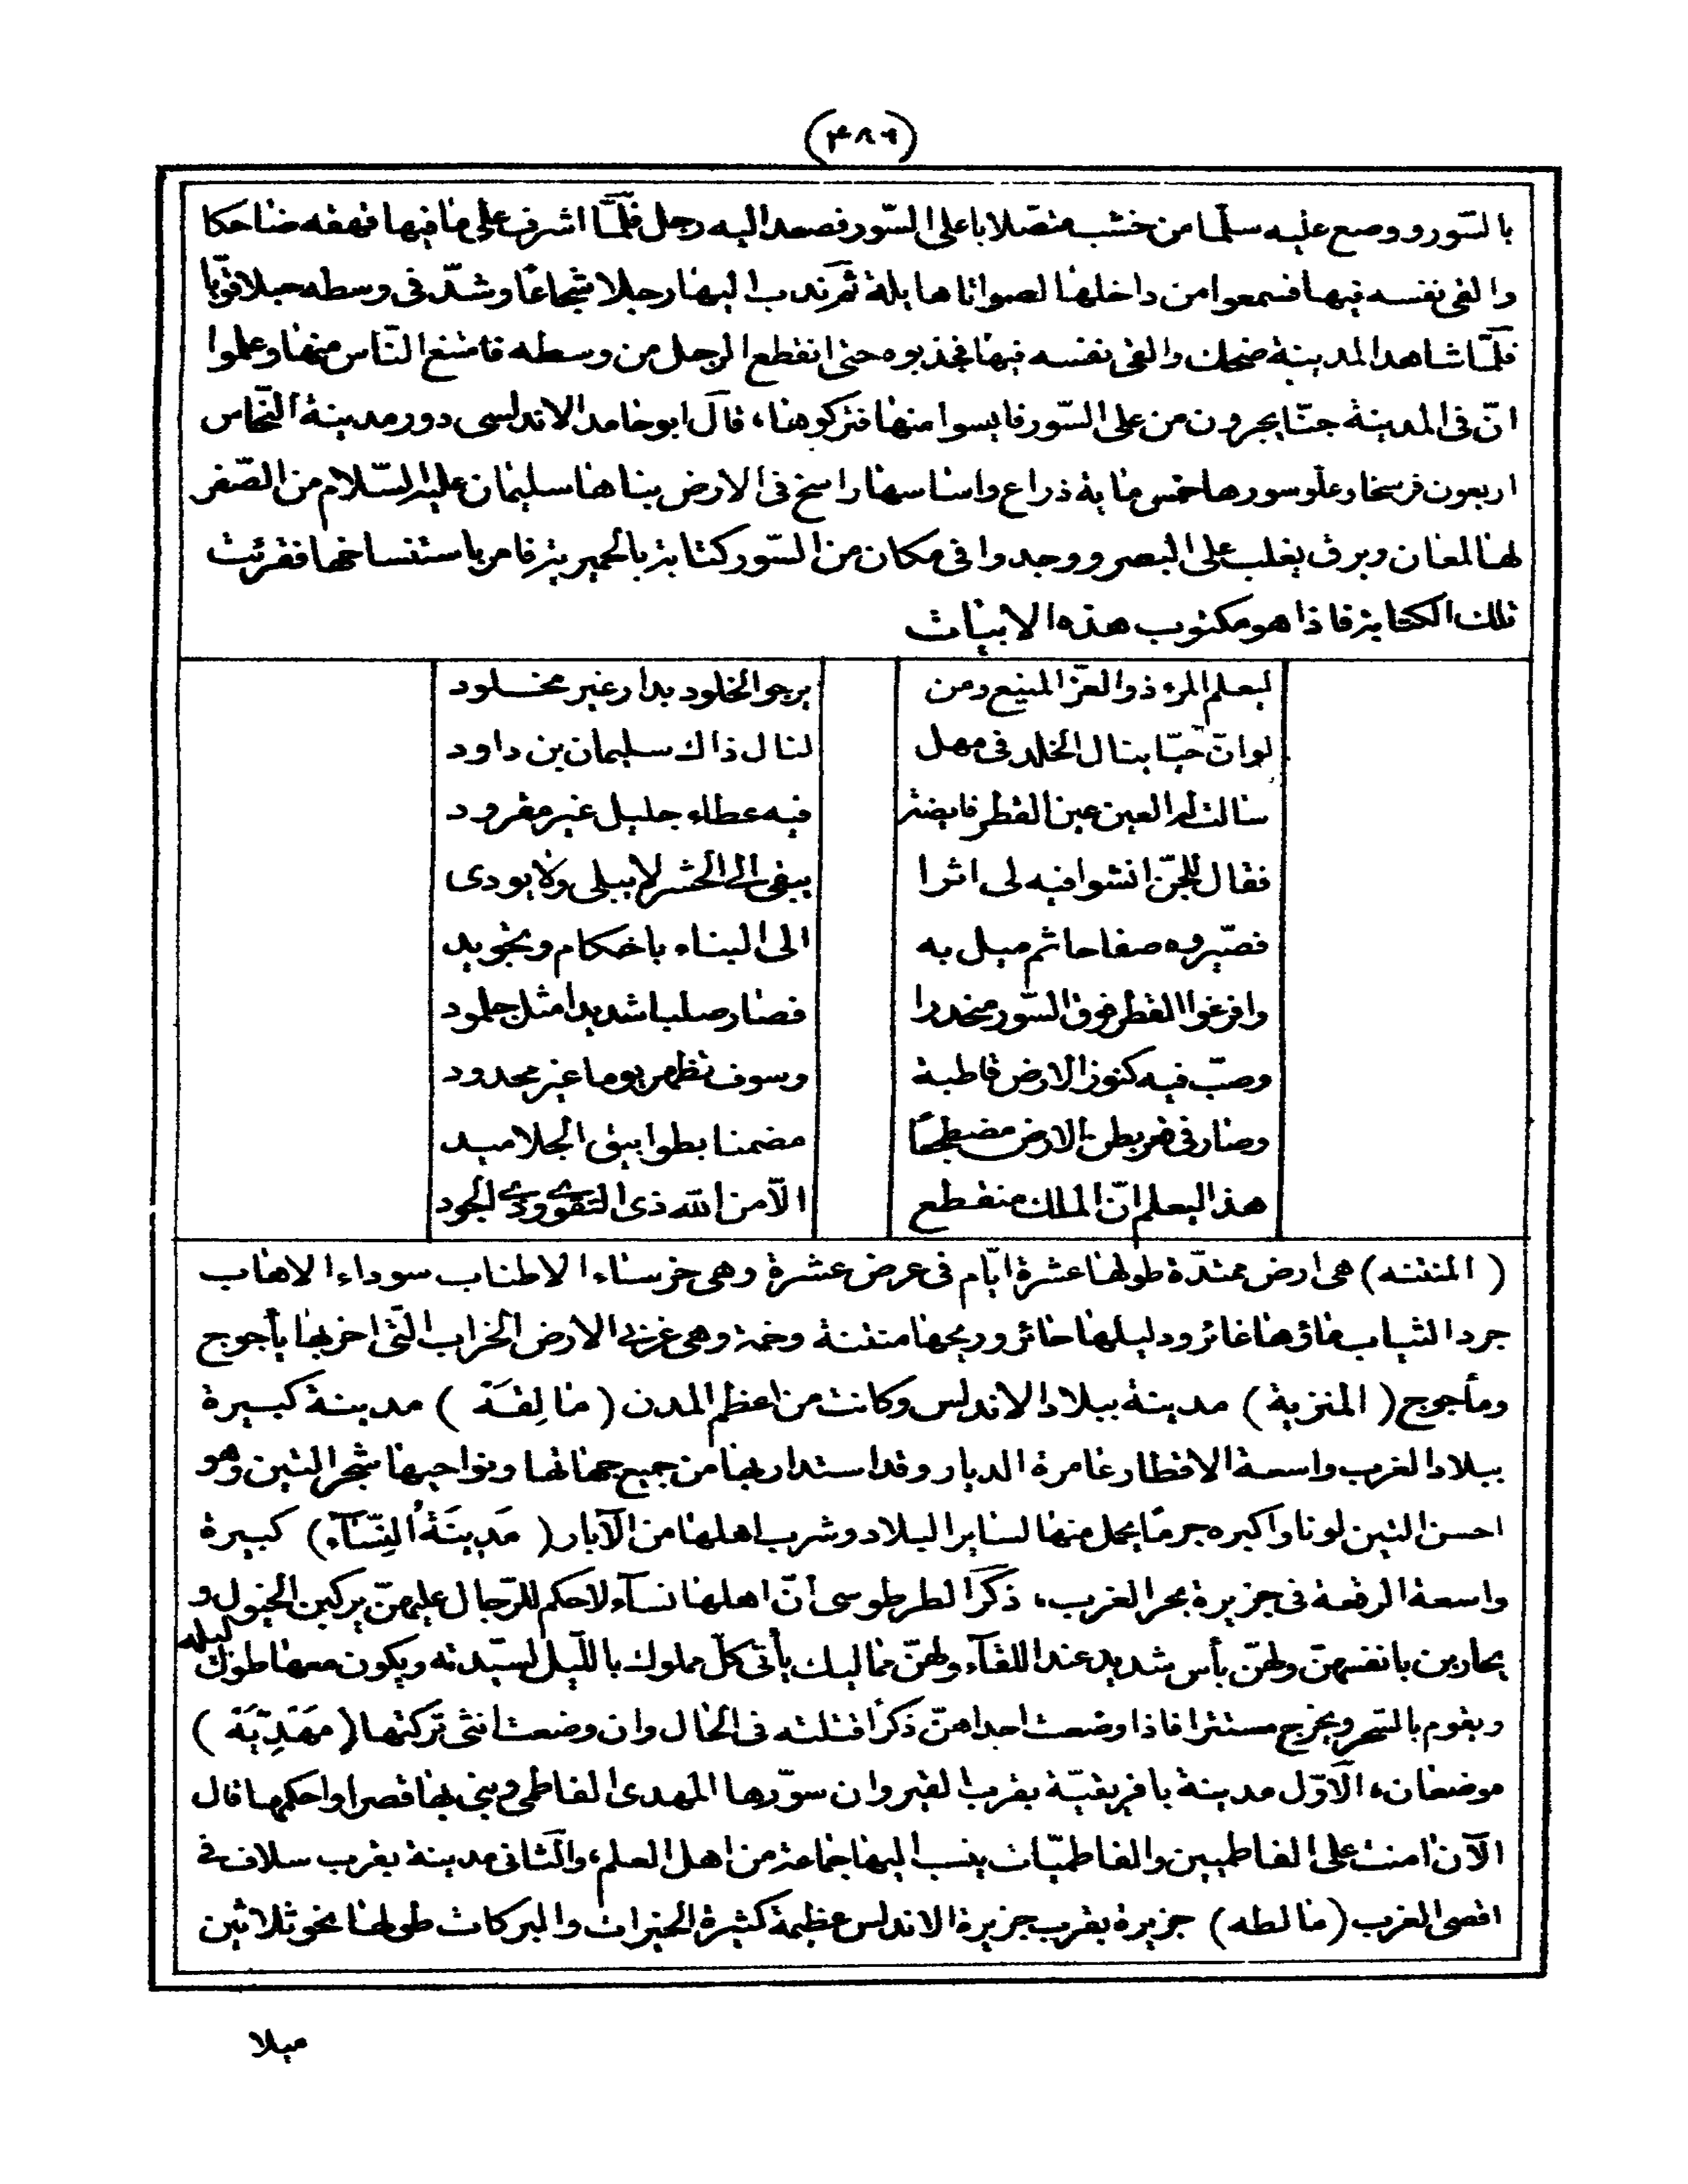 (۴۸۶)
بالسّور ووضع عليه سلّما من خشب متصّلا باعلى السّور فصعد اليه رجل فلمّا اشرف على ما فيها قهقه ضاحكا
والقى نفسه فيها فسمعوا من داخلها اصواتا هايلة ثم ندب اليها رجلا شجاعًا وشدّ فى وسطه حبلا قويّا
فلمّا شاهد المدينة ضحك والقى نفسه فيها فجذبوه حتى انقطع الرجل من وسطه فامتنع النّاس منها وعلموا
انّ فى المدينة جنّا يجرون من على السّور فايسوا منها فتركوها، قال ابوحامد الاندلسى دور مدينة النّحاس
اربعون فرسخا وعلو سورها خمس ماية ذراع واساسها راسخ فى الارض بناها سليمان عليه السّلام من الصّفر
لها لمعان وبرق يغلب على البصر ووجدوا فى مكان من السّور كتابة بالحميرية فامر باستنساخها فقرئت
تلك الكتابة فاذا هو مكتوب هذه الابيات
ليعلم المرء ذوالعزّ المنيع ومن يرجو الخلود بدار غير مخلود
لو انّ حيّا ينال الخلد فى مهل لنال ذاك سليمان بن داود
سالت له العين عين القطر فايضة فيه عطاء جليل غير مفرود
فقال للجنّ انشوا فيه لى اثرا يبقى الى الحشر لا يبلى ولا يودى
فصيّروه صفاحا ثم ميل به الى البناء باحكام وتجويد
وافرغوا القطر فوق السّور منحدرا فصار صلبا شديدا مثل جلمود
وصبّ فيه كنوز الارض قاطبة وسوف تظهر يوما غير محدود
وصار فى قعر بطن الارض مضطجعًا مضمنا بطوابيق الجلاميد
هذا ليعلم انّ الملك منقطع الّا من اللّه ذى التقوى وذى الجود
( المنتنه ) هى ارض ممتدّة طولها عشرة ايّام فى عرض عشرة وهى خرساء الاطناب سوداء الاهاب
جرد الثياب ماؤها غائر ودليلها حائر وريحها منتنة وخمة وهى غربى الارض الخراب الّتى اخربها يأجوج
ومأجوج ( المنزية ) مدينة ببلاد الاندلس وكانت من اعظم المدن ( مالِقَة ) مدينة كبيرة
ببلاد الغرب واسعة الاقطار عامرة الديار وقد استدار بها من جميع جهاتها ونواحيها شجر التين وهو
احسن التين لونا واكبره جرمًا يحمل منها لساير البلاد وشرب اهلها من الآبار ( مَدِينَةُ النِّسَآء ) كبيرة
واسعة الرقعة فى جزيرة بحر الغرب، ذكر الطرطوسى انّ اهلها نسآء لا حكم للرّجال عليهنّ يركبن الخيول و
يحاربن بانفسهنّ ولهنّ بأس شديد عند اللقآء ولهنّ مماليك يأتى كلّ مملوك بالليل لسيّدته ويكون معها طول ليله
ويقوم بالسّحر ويخرج مستترا فاذا وضعت احداهنّ ذكرا قتلته فى الحال وان وضعت انثى تركتها ( مَهَدِيَّة )
موضعان، الاوّل مدينة بافريقيّة بقرب القيروان سوّرها المهدى الفاطمى وبنى بها قصرا واحكمها قال
الآن امنت على الفاطميين والفاطميّات ينسب اليها جماعة من اهل العلم، والثانى مدينة بقرب سلاف فى
اقصى الغرب ( مالطه ) جزيرة بقرب جزيرة الاندلس عظيمة كثيرة الخيرات والبركات طولها نحو ثلاثين
ميلا